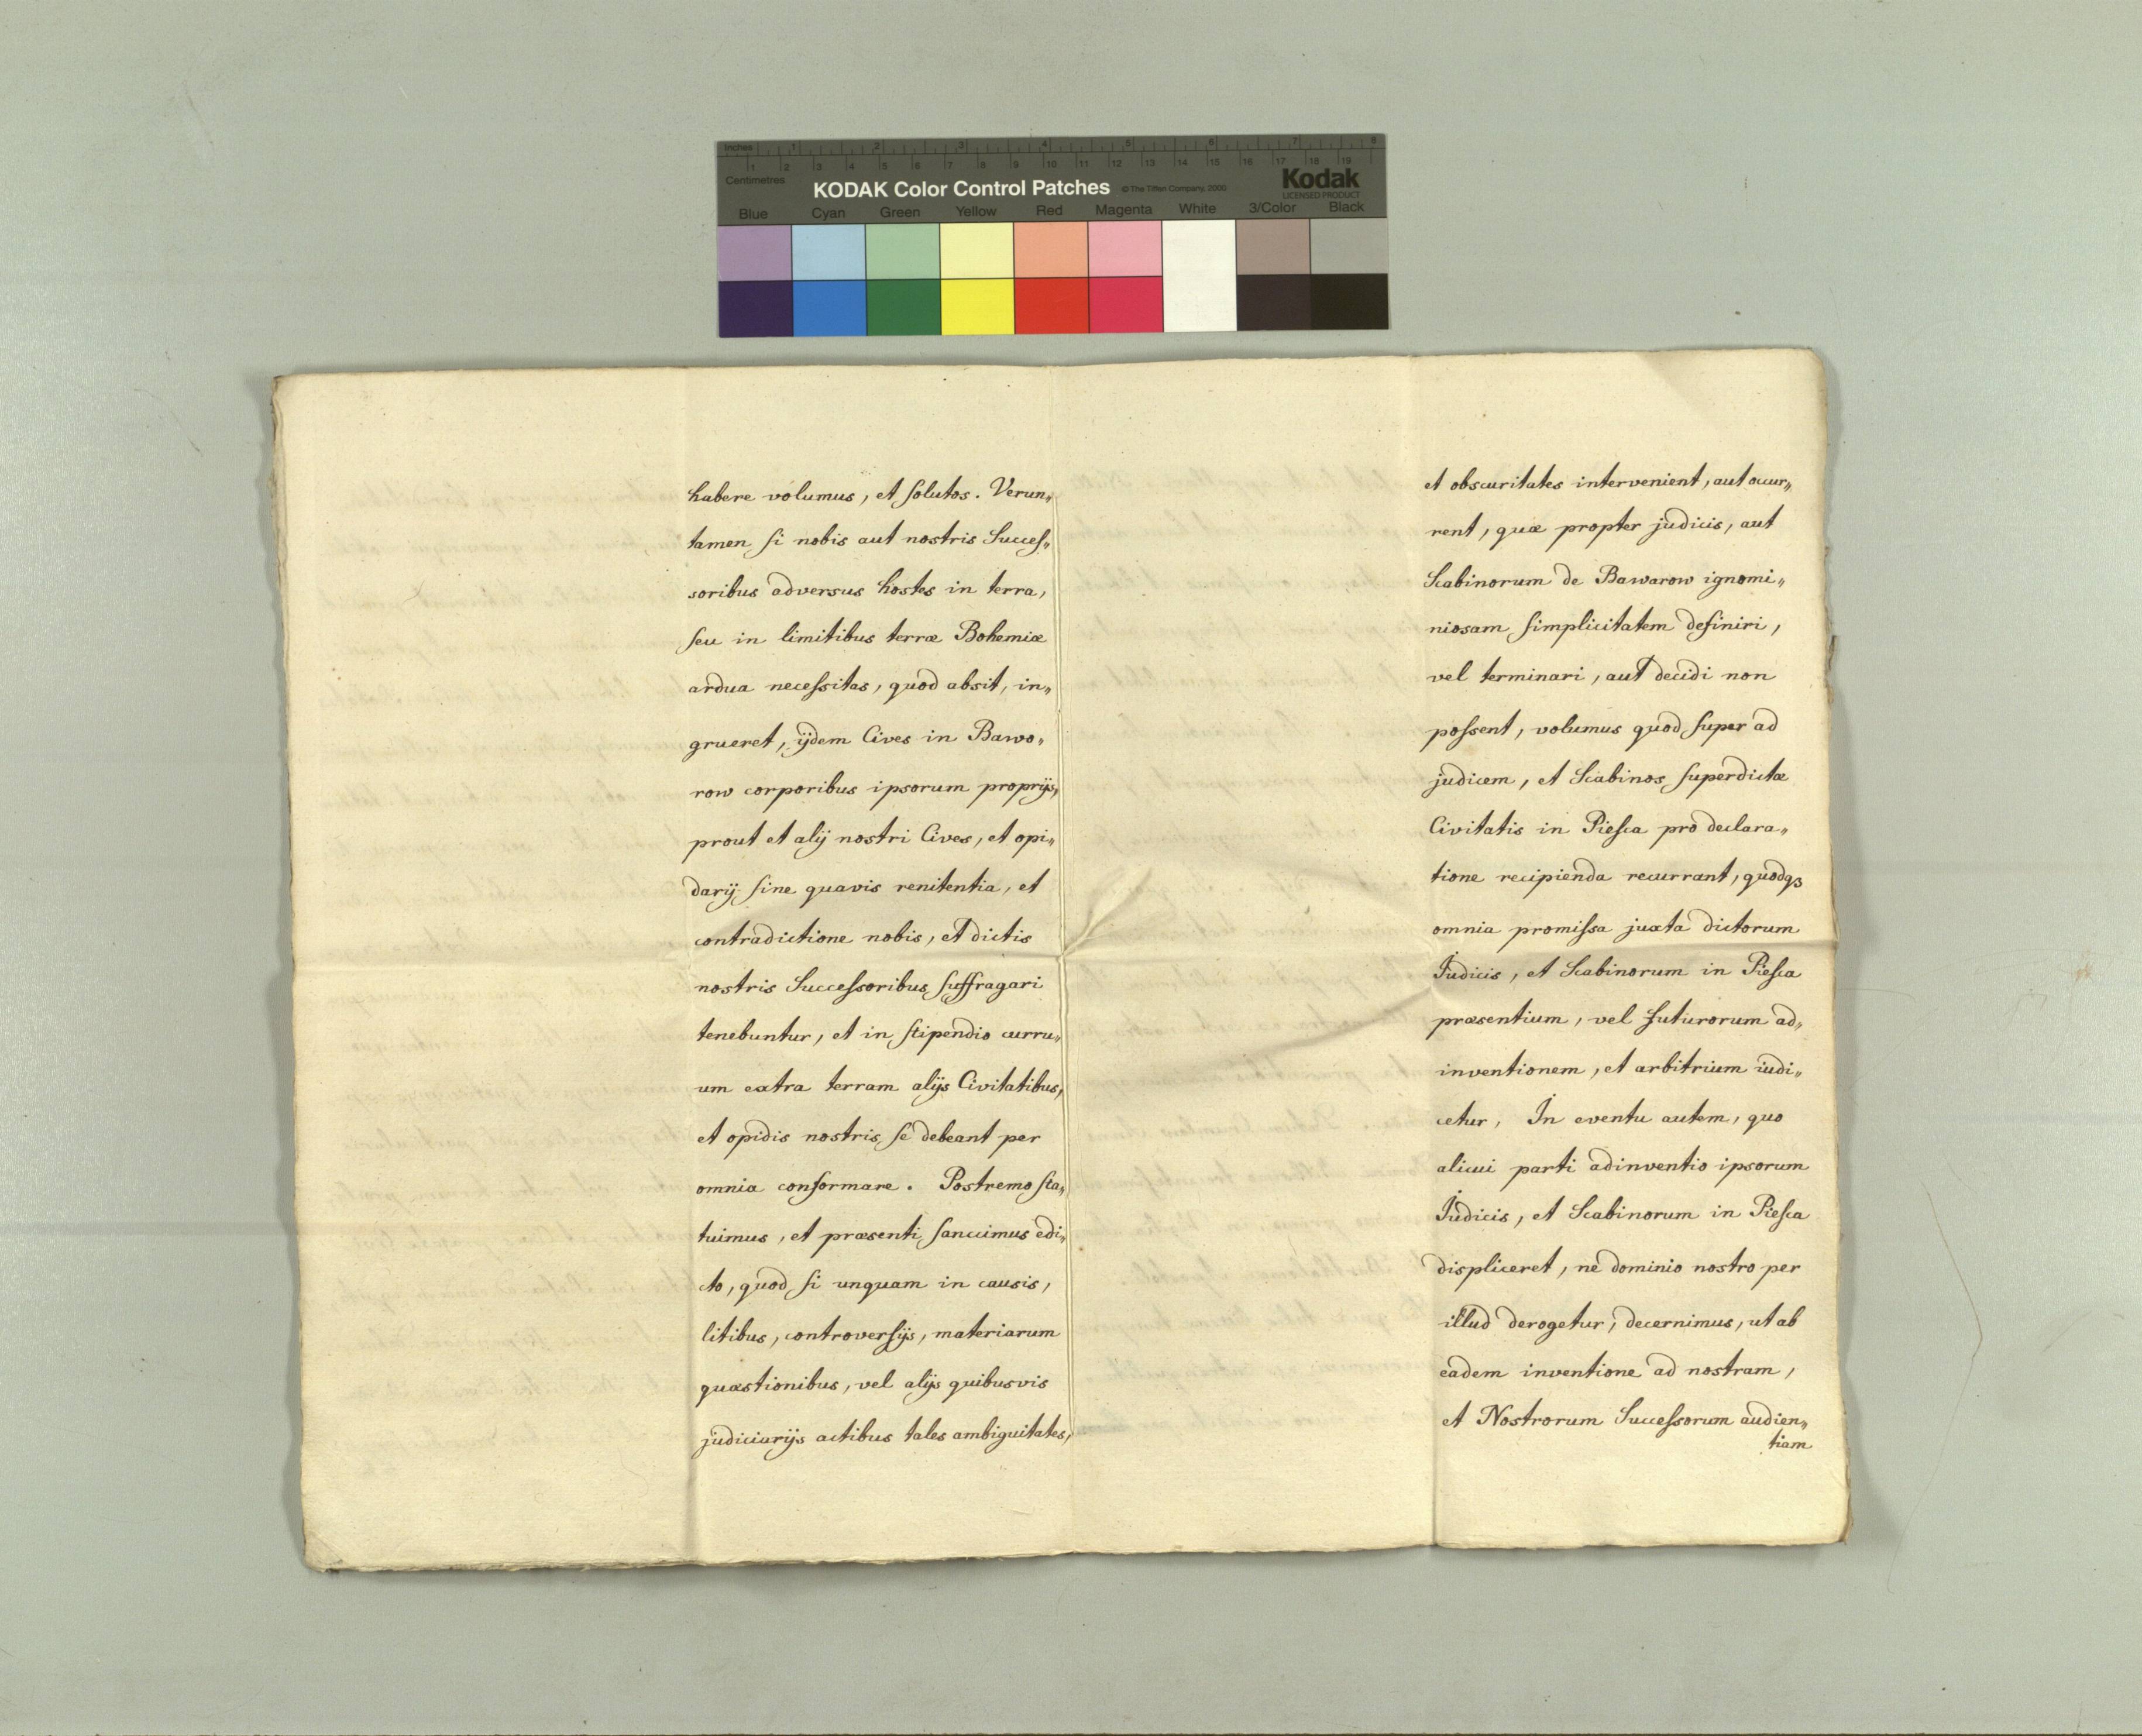 Inches 1 2 3 4 5 6 7 8
1 2 3 4 5 6 7 8 9 10 11 12 13 14 15 16 17 18 19
Centimetres
KODAK Color Control Patches © The Tiffen Company, 2000 Kodak
LICENSED PRODUCT
Blue Cyan Green Yellow Red Magenta White 3/Color Black
habere volumus, et solutos. Verun„
tamen si nobis aut nostris Succes„
soribus adversus hostes in terra,
seu in limitibus terræ Bohemiæ
ardua necessitas, quod absit, in„
grueret, ijdem Cives in Bawo„
row corporibus ipsorum proprijs,
prout et alij nostri Cives, et opi„
darij sine quavis renitentia, et
contradictione nobis, et dictis
nostris Successoribus suffragari
tenebuntur, et in stipendio curru„
um extra terram alijs Civitatibus,
et opidis nostris se debeant per
omnia conformare. Postremo sta„
tuimus, et præsenti sanccimus edi„
cto, quod si unquam in causis,
litibus, controversijs, materiarum
quæstionibus, vel alijs quibusvis
judiciarijs actibus tales ambiguitates,
et obscuritates intervenient, aut occur„
rent, quæ propter judicis, aut
Scabinorum de Bawarow ignomi„
niosam simplicitatem definiri,
vel terminari, aut decidi non
possent, volumus quod super ad
judicem, et Scabinos superdictæ
Civitatis in Piesca pro declara„
tione recipienda recurrant, quodqꝫ
omnia promissa juxta dictorum
Judicis, et Scabinorum in Piesca
præsentium, vel futurorum ad„
inventionem, et arbitrium iudi„
cetur, In eventu autem, quo
alicui parti adinventio ipsorum
Judicis, et Scabinorum in Piesca
displiceret, ne dominio nostro per
illud derogetur, decernimus, ut ab
eadem inventione ad nostram,
et Nostrorum Successorum audien„
tiam